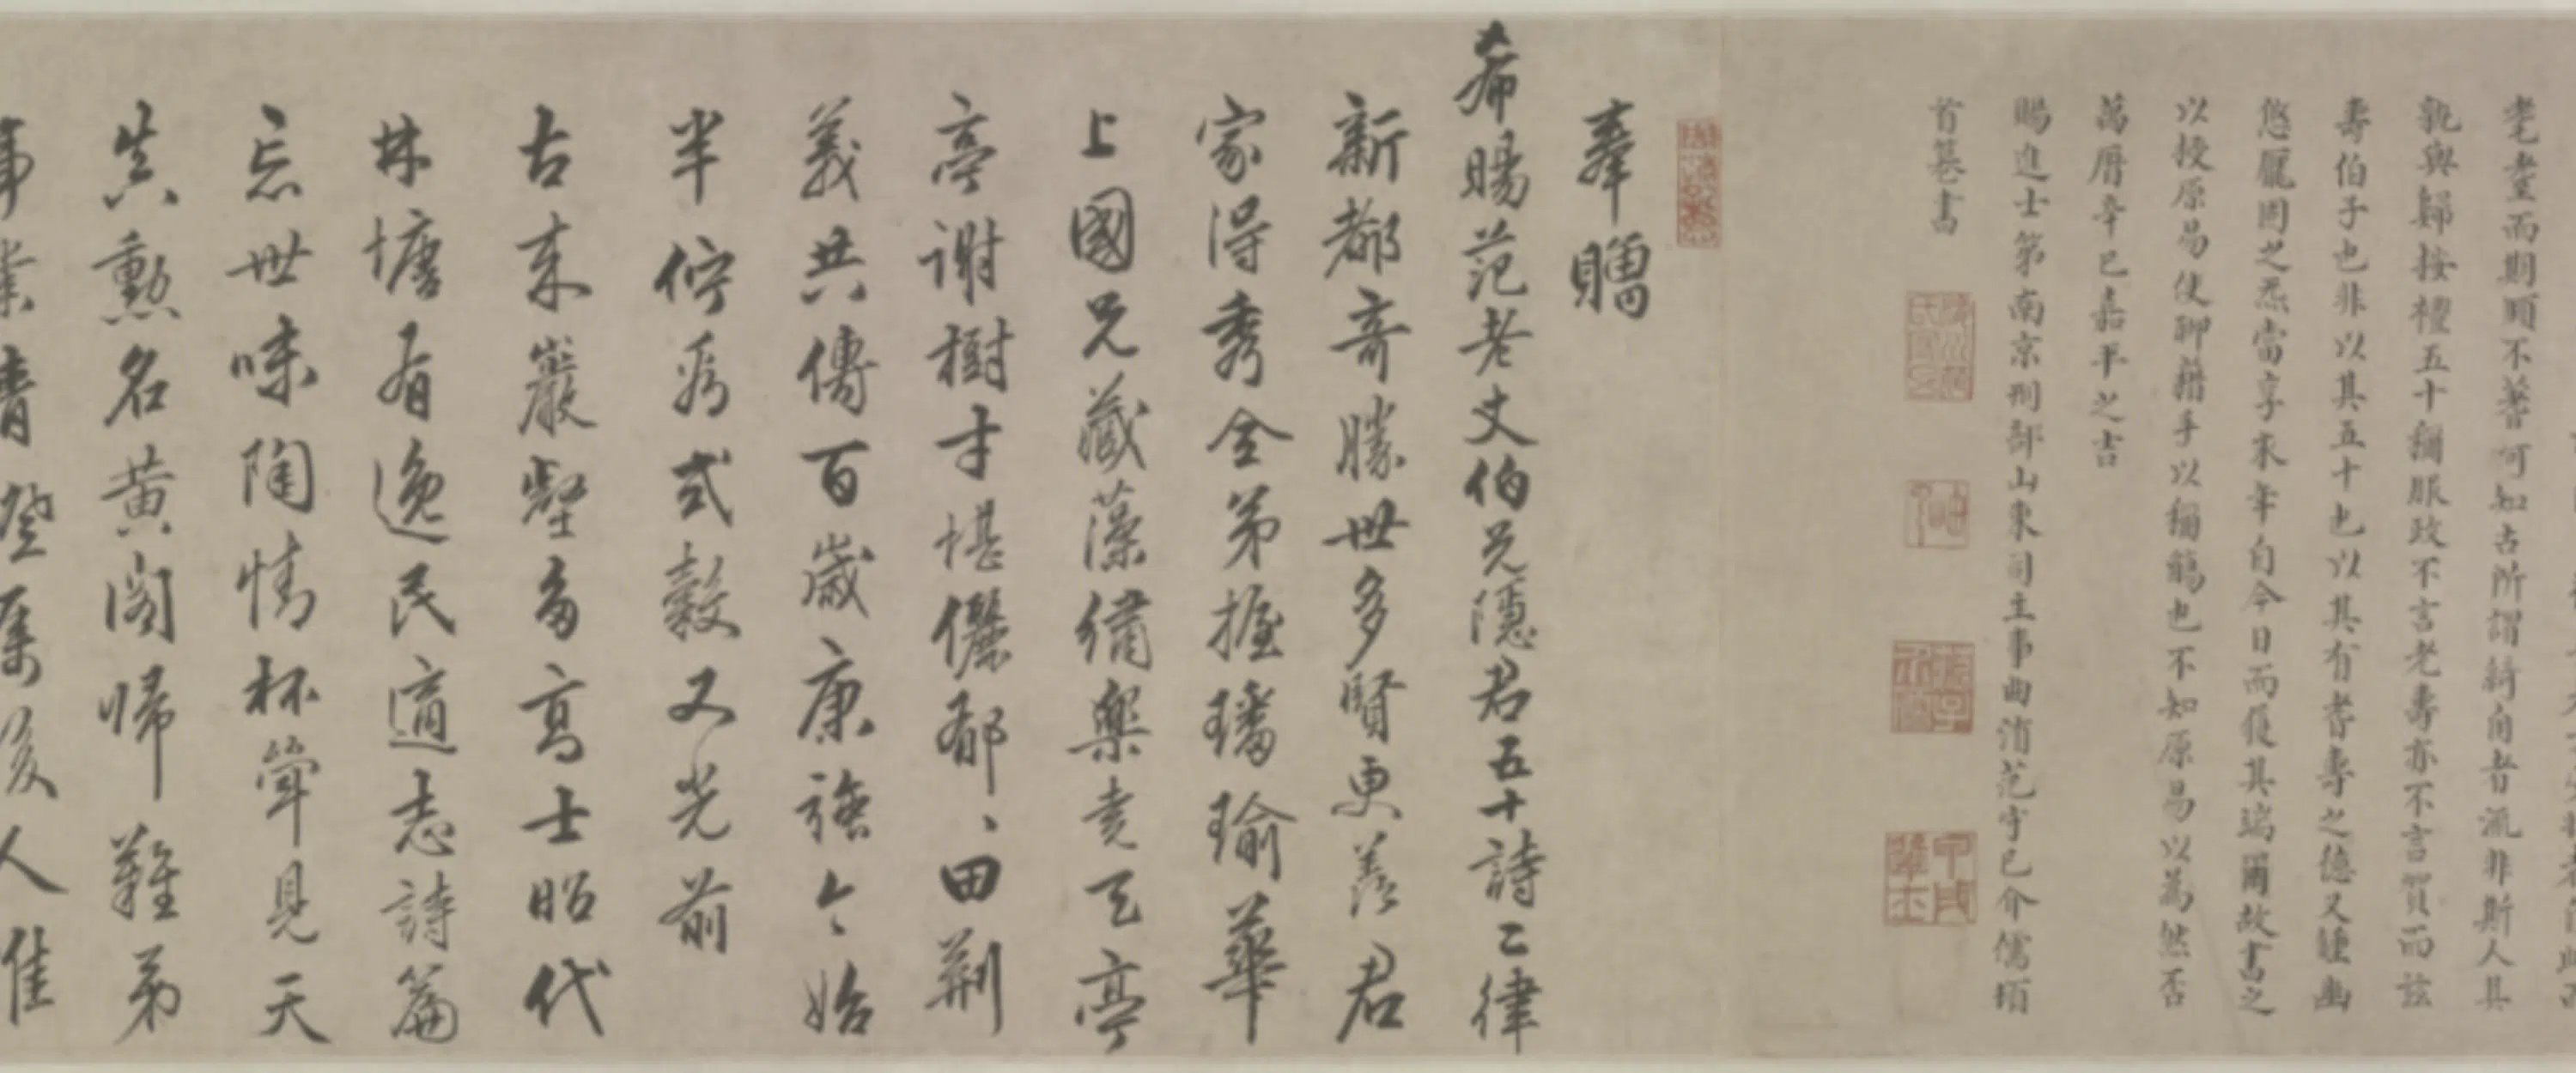 耄耋而期頤不著何知古所謂綺甪者流非斯人其
孰與歸按禮五十稱服政不言老壽亦不言賀而茲
壽伯子也非以其五十也以其有耆壽之德又踵幽
悠厖固之悉當享永年自今日而飫其端爾故書之
以授原易使聊藉手以稱觴也不知原易以為然否
萬曆辛巳嘉平之吉
賜進士第南京刑部山東司主事曲消范守已介儒頓
首篹書
奉贈
希賜范老丈伯兄隱君五十詩二律
新都奇勝世多賢更羨君
家得秀全弟握璠瑜華
上國兄藏藻繡樂堯天亭
亭謝樹才堪儷郁郁田荊
義共傳百歲康強今始
半俾爾式穀又光前
古來巖壑多高士昭代
林塘有逸民適志詩篇
忘世味陶情杯斝見天
真勳名黃閣歸難弟
事業青

人